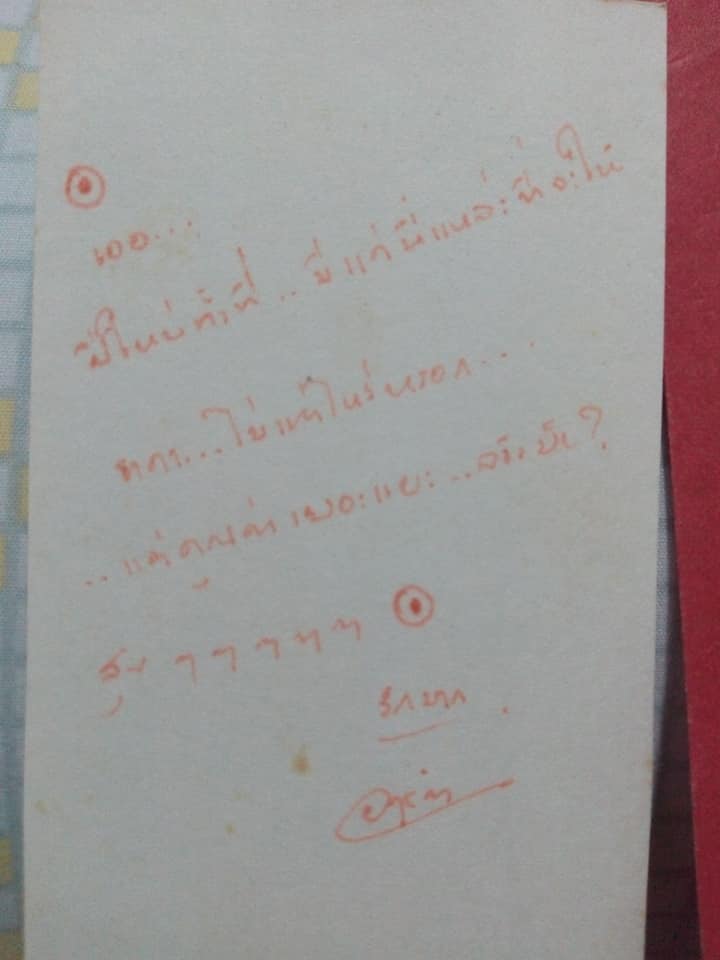 เออ...
ปีใหม่ทั้งที.. มีแค่นี้แหล่ะที่จะให้
ราคา...ไม่เท่าไหร่หรอก...
..แต่คุณค่าเยอะแยะ..
สุข ๆ ๆ ๆ ๆ ๆ
รักมาก